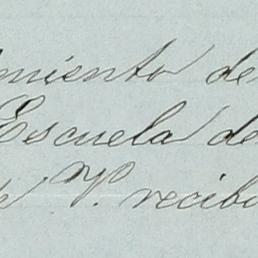 miento de
Escuela de
V. recibo